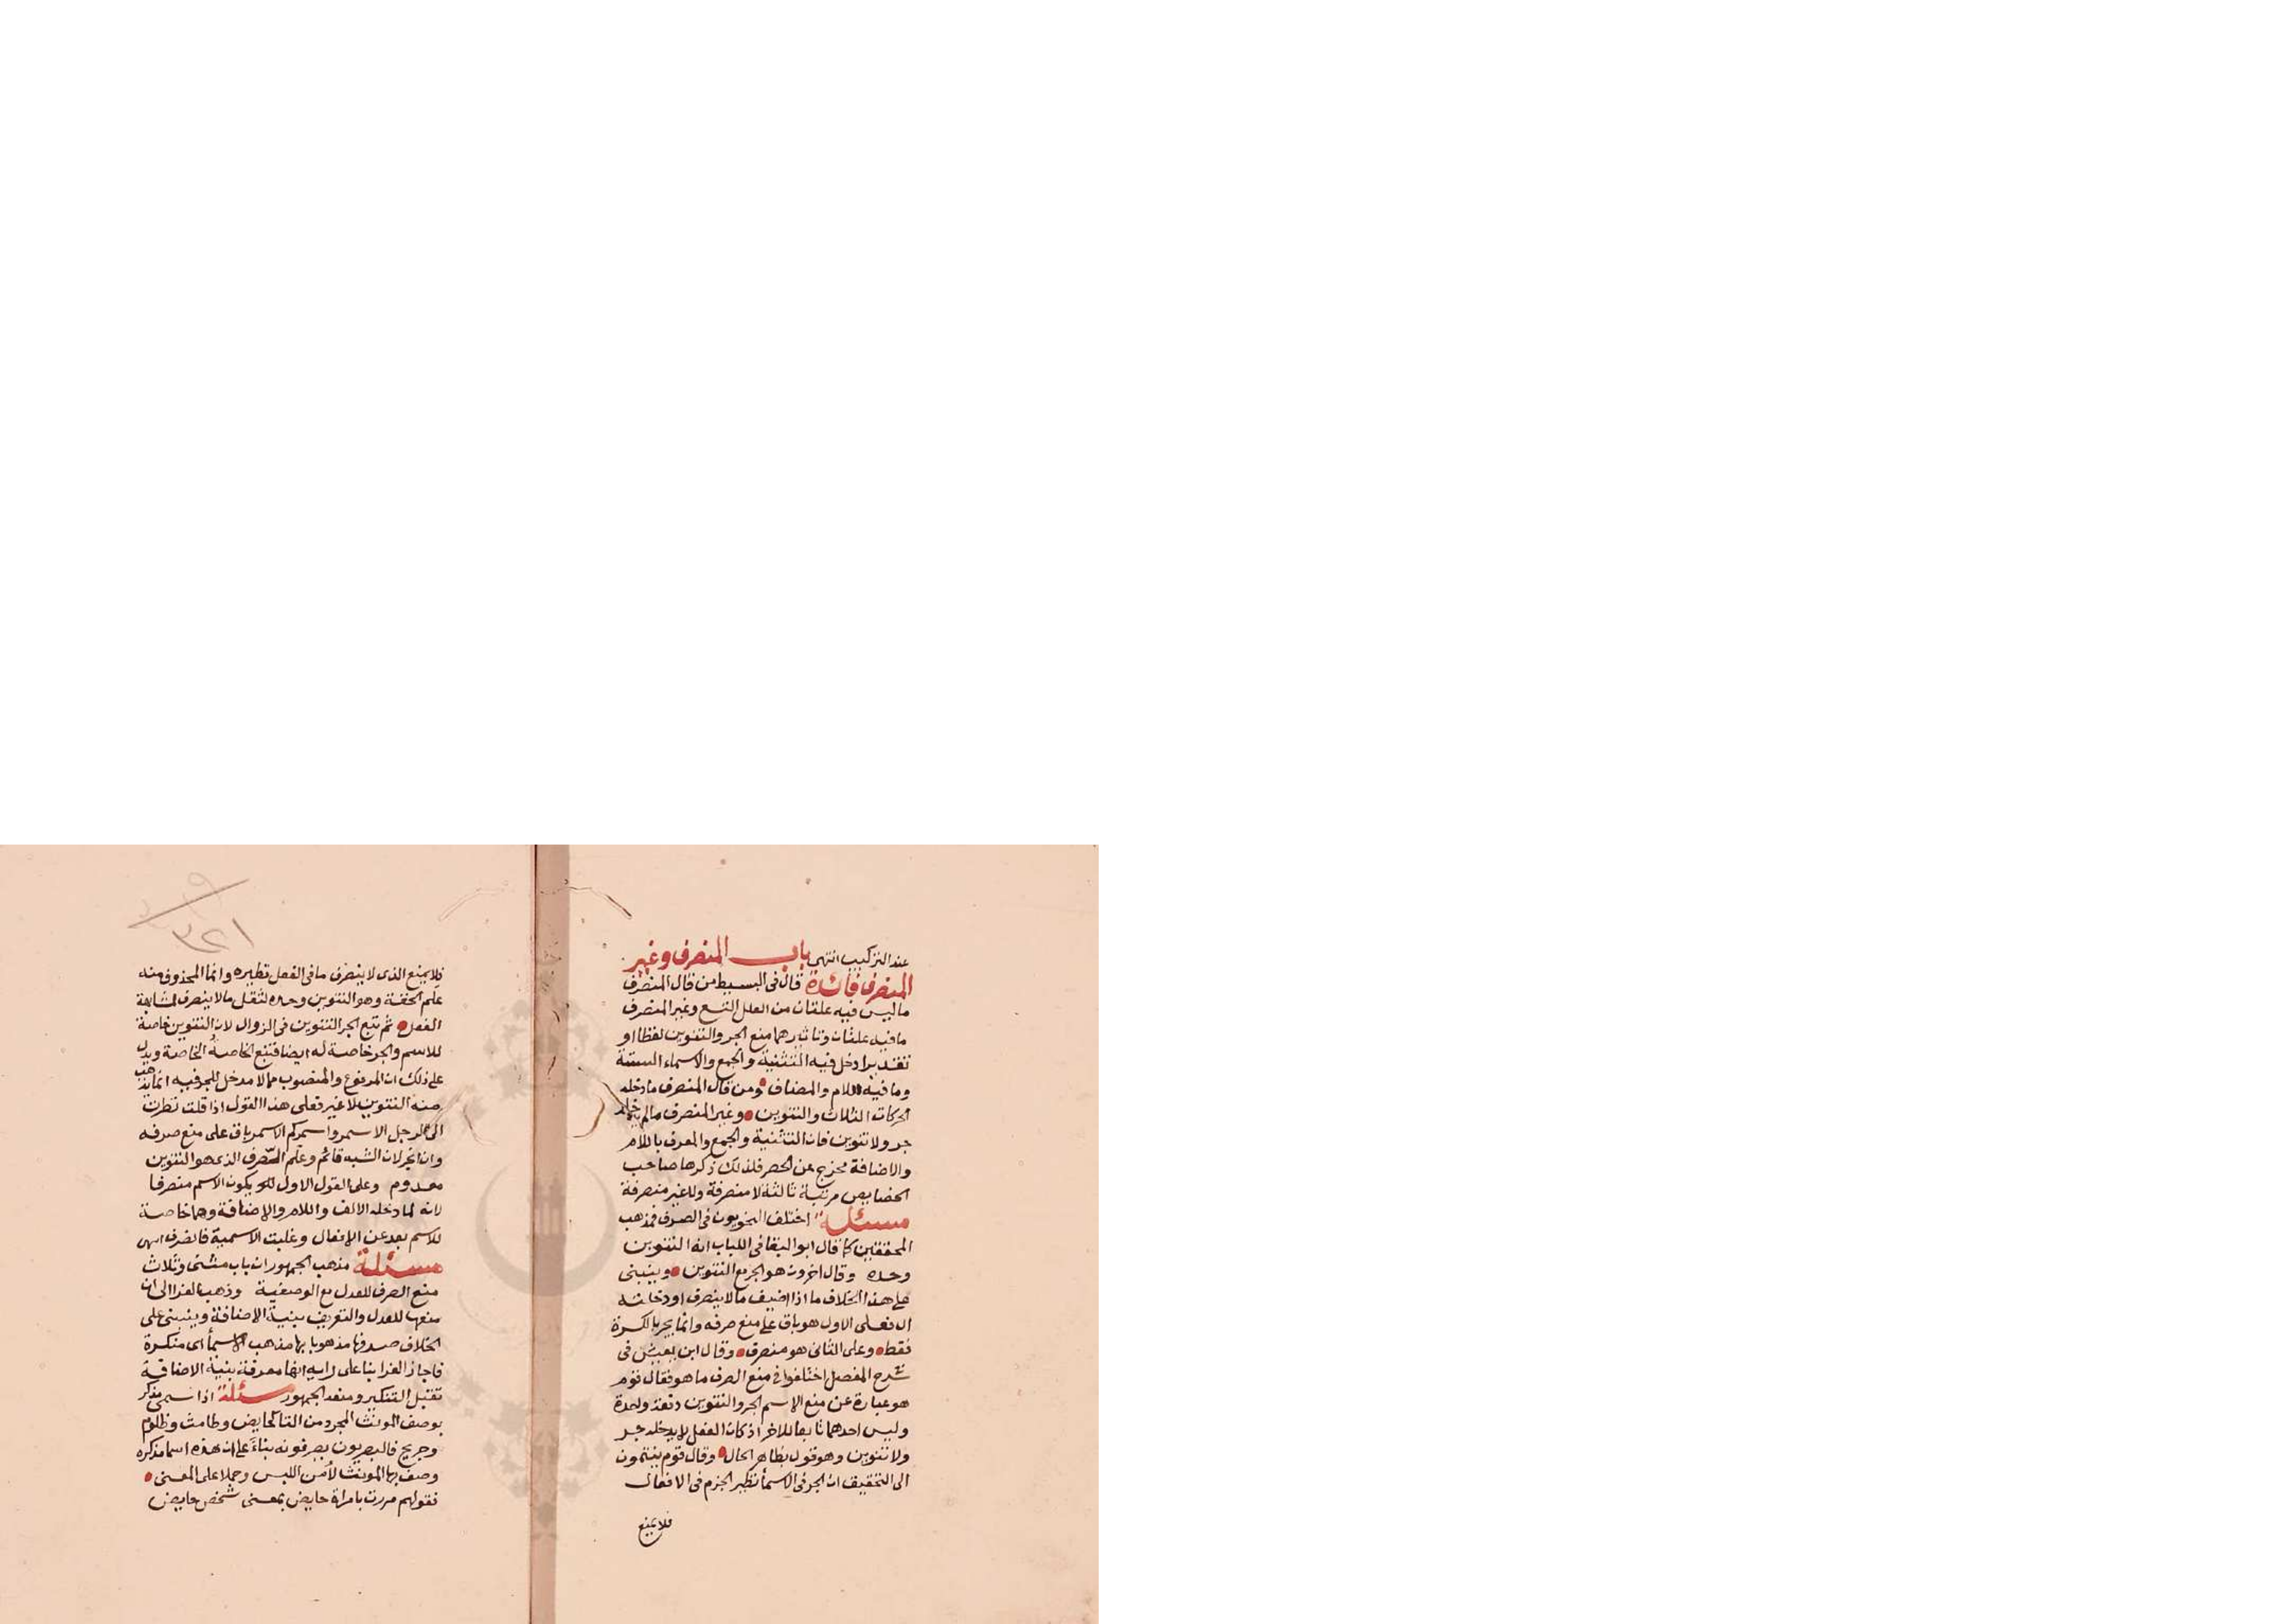 عند التركيب انتهى باب المنصرف وغير
المنصرف فائدة قال فى البسيط من قال المنصرف
ما ليس فيه علتان من العلل التسع وغير المنصرف
ما فيه علتان وتاثيرهما منع الجر والتنوين لفظا او
تقديرا دخل فيه التثنية والجمع والاسماء الستة
وما فيه اللام والمضاف ومن قال المنصرف ما دخله
الحركات الثلاث والتنوين وغير المنصرف مالم يدخله
جر ولا تنوين فان التثنية والجمع والمعرف باللام
والاضافة تخرج عن الحصر فلذلك ذكرها صاحب
الخصايص مرتبة ثالثة لا منصرفة ولا غير منصرفة
مسئلة اختلف النحويون فى الصرف فمذهب
المحققين كما قال ابو البقا فى اللباب انه التنوين
وحده وقال اخرون هو الجر مع التنوين وينبنى
على هذا الخلاف ما اذا اضيف مالا ينصرف او دخلته
ال فعلى الاول هو باق على منع صرفه وانما يجر بالكسرة
فقط وعلى الثانى هو منصرف وقال ابن يعيش فى
شرح المفصل اختلفوا فى منع الصرف ما هو فقال قوم
هو عبارة عن منع الاسم الجر والتنوين دفعة واحدة
وليس احدهما تابعا للاخر اذ كان الفعل لا يدخله جر
ولا تنوين وهو قول بظاهر الحال وقال قوم ينتمون
الى التحقيق ان الجر فى الاسما نظير الجزم فى الافعال
فلا يمنع
٣٢١
فلا يمنع الذى لا ينصرف ما فى الفعل نظيره وانما المحذوف منه
علم الخفة وهو التنوين وحده لثقل مالا ينصرف لمشابهة
الفعل ثم تبع الجر التنوين فى الزوال لان التنوين خاصة
للاسم والجر خاصة له ايضا فتبع الخاصة الخاصة ويدل
على ذلك ان المرفوع والمنصوب مما لا مدخل للجر فيه انما يذهب
منه التنوين لا غير فعلى هذا القول اذا قلت نظرت
الى الرجل الاسمر واسمركم الاسمر باق على منع صرفه
وان انجر لان الشبه قائم وعلم الصرف الذى هو التنوين
معدوم وعلى القول الاول يكون الاسم منصرفا
لانه لما دخله الالف واللام والاضافة وهما خاصة
للاسم بعد عن الافعال وغلبت الاسمية فانصرف انتهى
مسئلة مذهب الجمهور ان باب مثنى وثلاث
منع الصرف للعدل مع الوصفية وذهب الفرا الى ان
منعها للعدل والتعريف بنية الاضافة وينبنى على
الخلاف صرفها مذهوبا بها مذهب الاسما اى منكرة
فاجاز الفرا بنا على رايه انها معرفة بنية الاضافة
تقبل التنكير ومنعه الجمهور مسئلة اذا سمى مذكر
بوصف المونث المجرد من التا كحايض وطامث وظلوم
وجريح فالبصريون يصرفونه بناءً على ان هذه اسما مذكره
وصف بها المونث لأمن اللبس وحملا على المعنى
فقولهم مررت بامراة حايض بمعنى شخص حايض